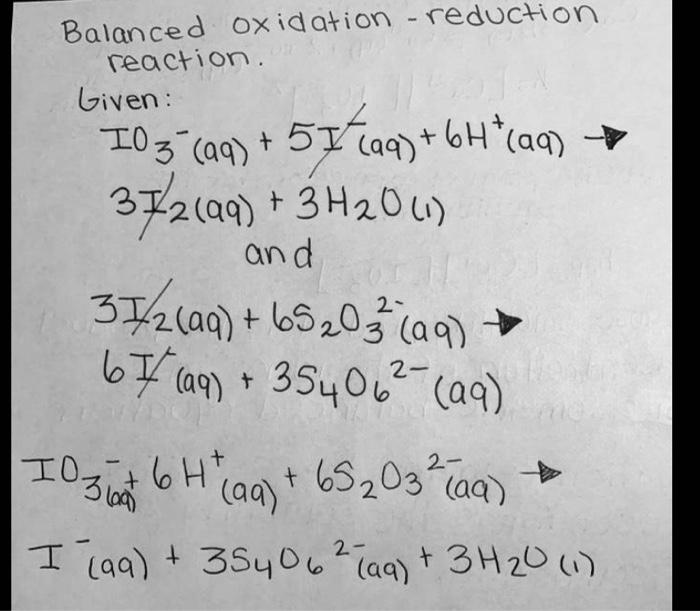 Balanced oxidation - reduction
reaction.
Given:
IO₃⁻(aq) + 5I⁻(aq) + 6H⁺(aq) →
3I₂(aq) + 3H₂O(l)
and
3I₂(aq) + 6S₂O₃²⁻(aq) →
6I⁻(aq) + 3S₄O₆²⁻(aq)
IO₃⁻(aq) + 6H⁺(aq) + 6S₂O₃²⁻(aq) →
I⁻(aq) + 3S₄O₆²⁻(aq) + 3H₂O(l)